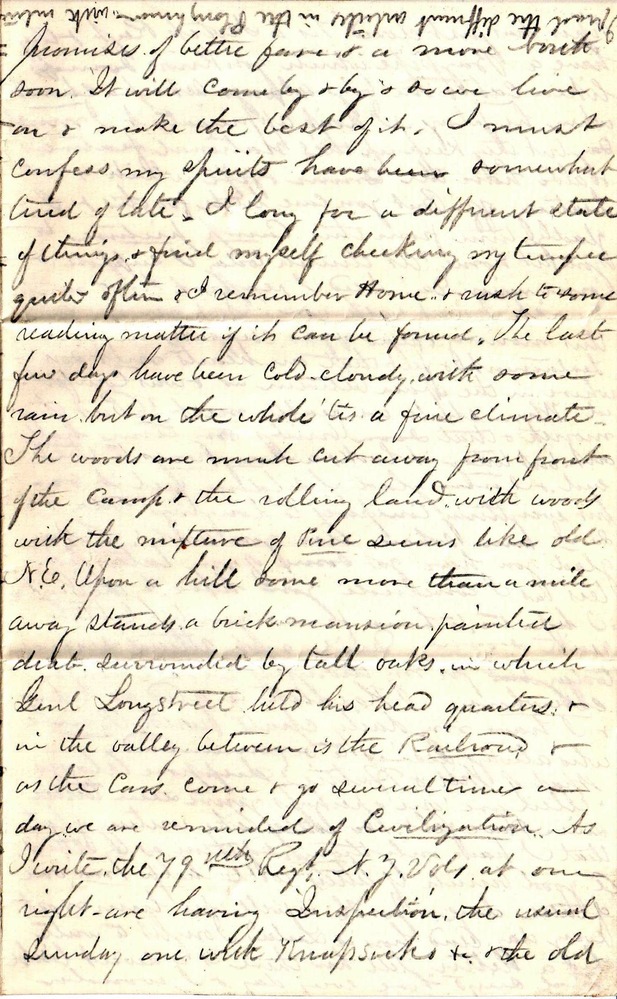 I read the different articles in the Ploughman with
promises of better fare & a more berth
soon. It will come by & by & so we live
on & make the best of it. I must
confess my spirits have been somewhat
tired of late. I long for a different state
of things, & find myself checking my temper
quite often & I remember Home. & rush to some
reading matter if it can be found. The last
few days have been cold-cloudy, with some
rain but on the whole 'tis a fine climate.
The woods are much cut away from front
of the Camp & the rolling land, with woods
with the mixture of Pine seems like old
N.E. Upon a hill some more than a mile
away stands a brick mansion, painted
drab. surrounded by tall oaks. in which
Genl Longstreet held his head quarters. &
in the valley between is the Railroad &
as the Cars come & go several times a
day we are reminded of Civilization. As
I write the 79 Regt. N.Y. Vols. at our
right - are having Inspection, the usual
Sunday one with Knapsacks &c. & the old